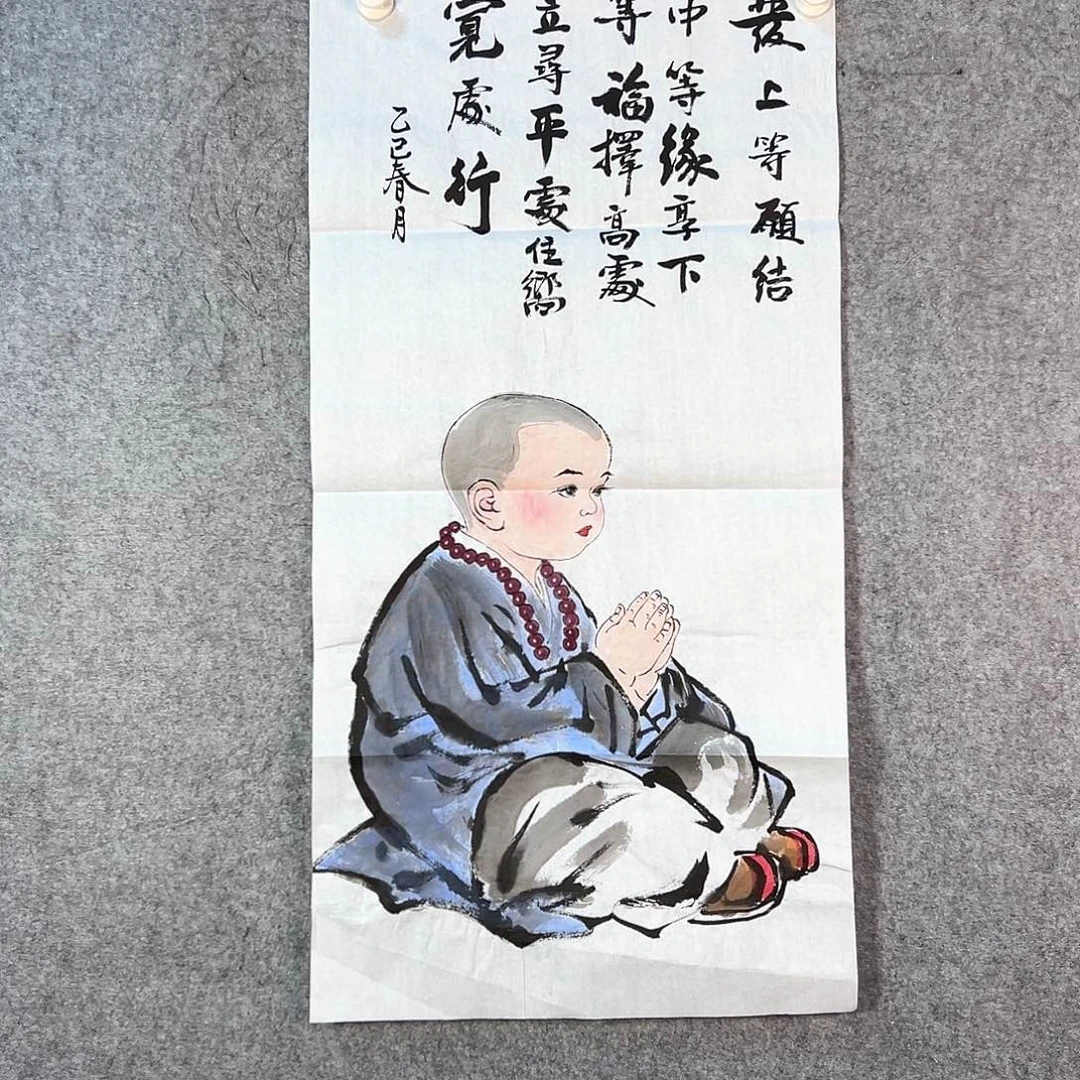 發上等願結
中等緣享下
等福擇高處
立尋平處住嚮
寬處行
乙巳春月